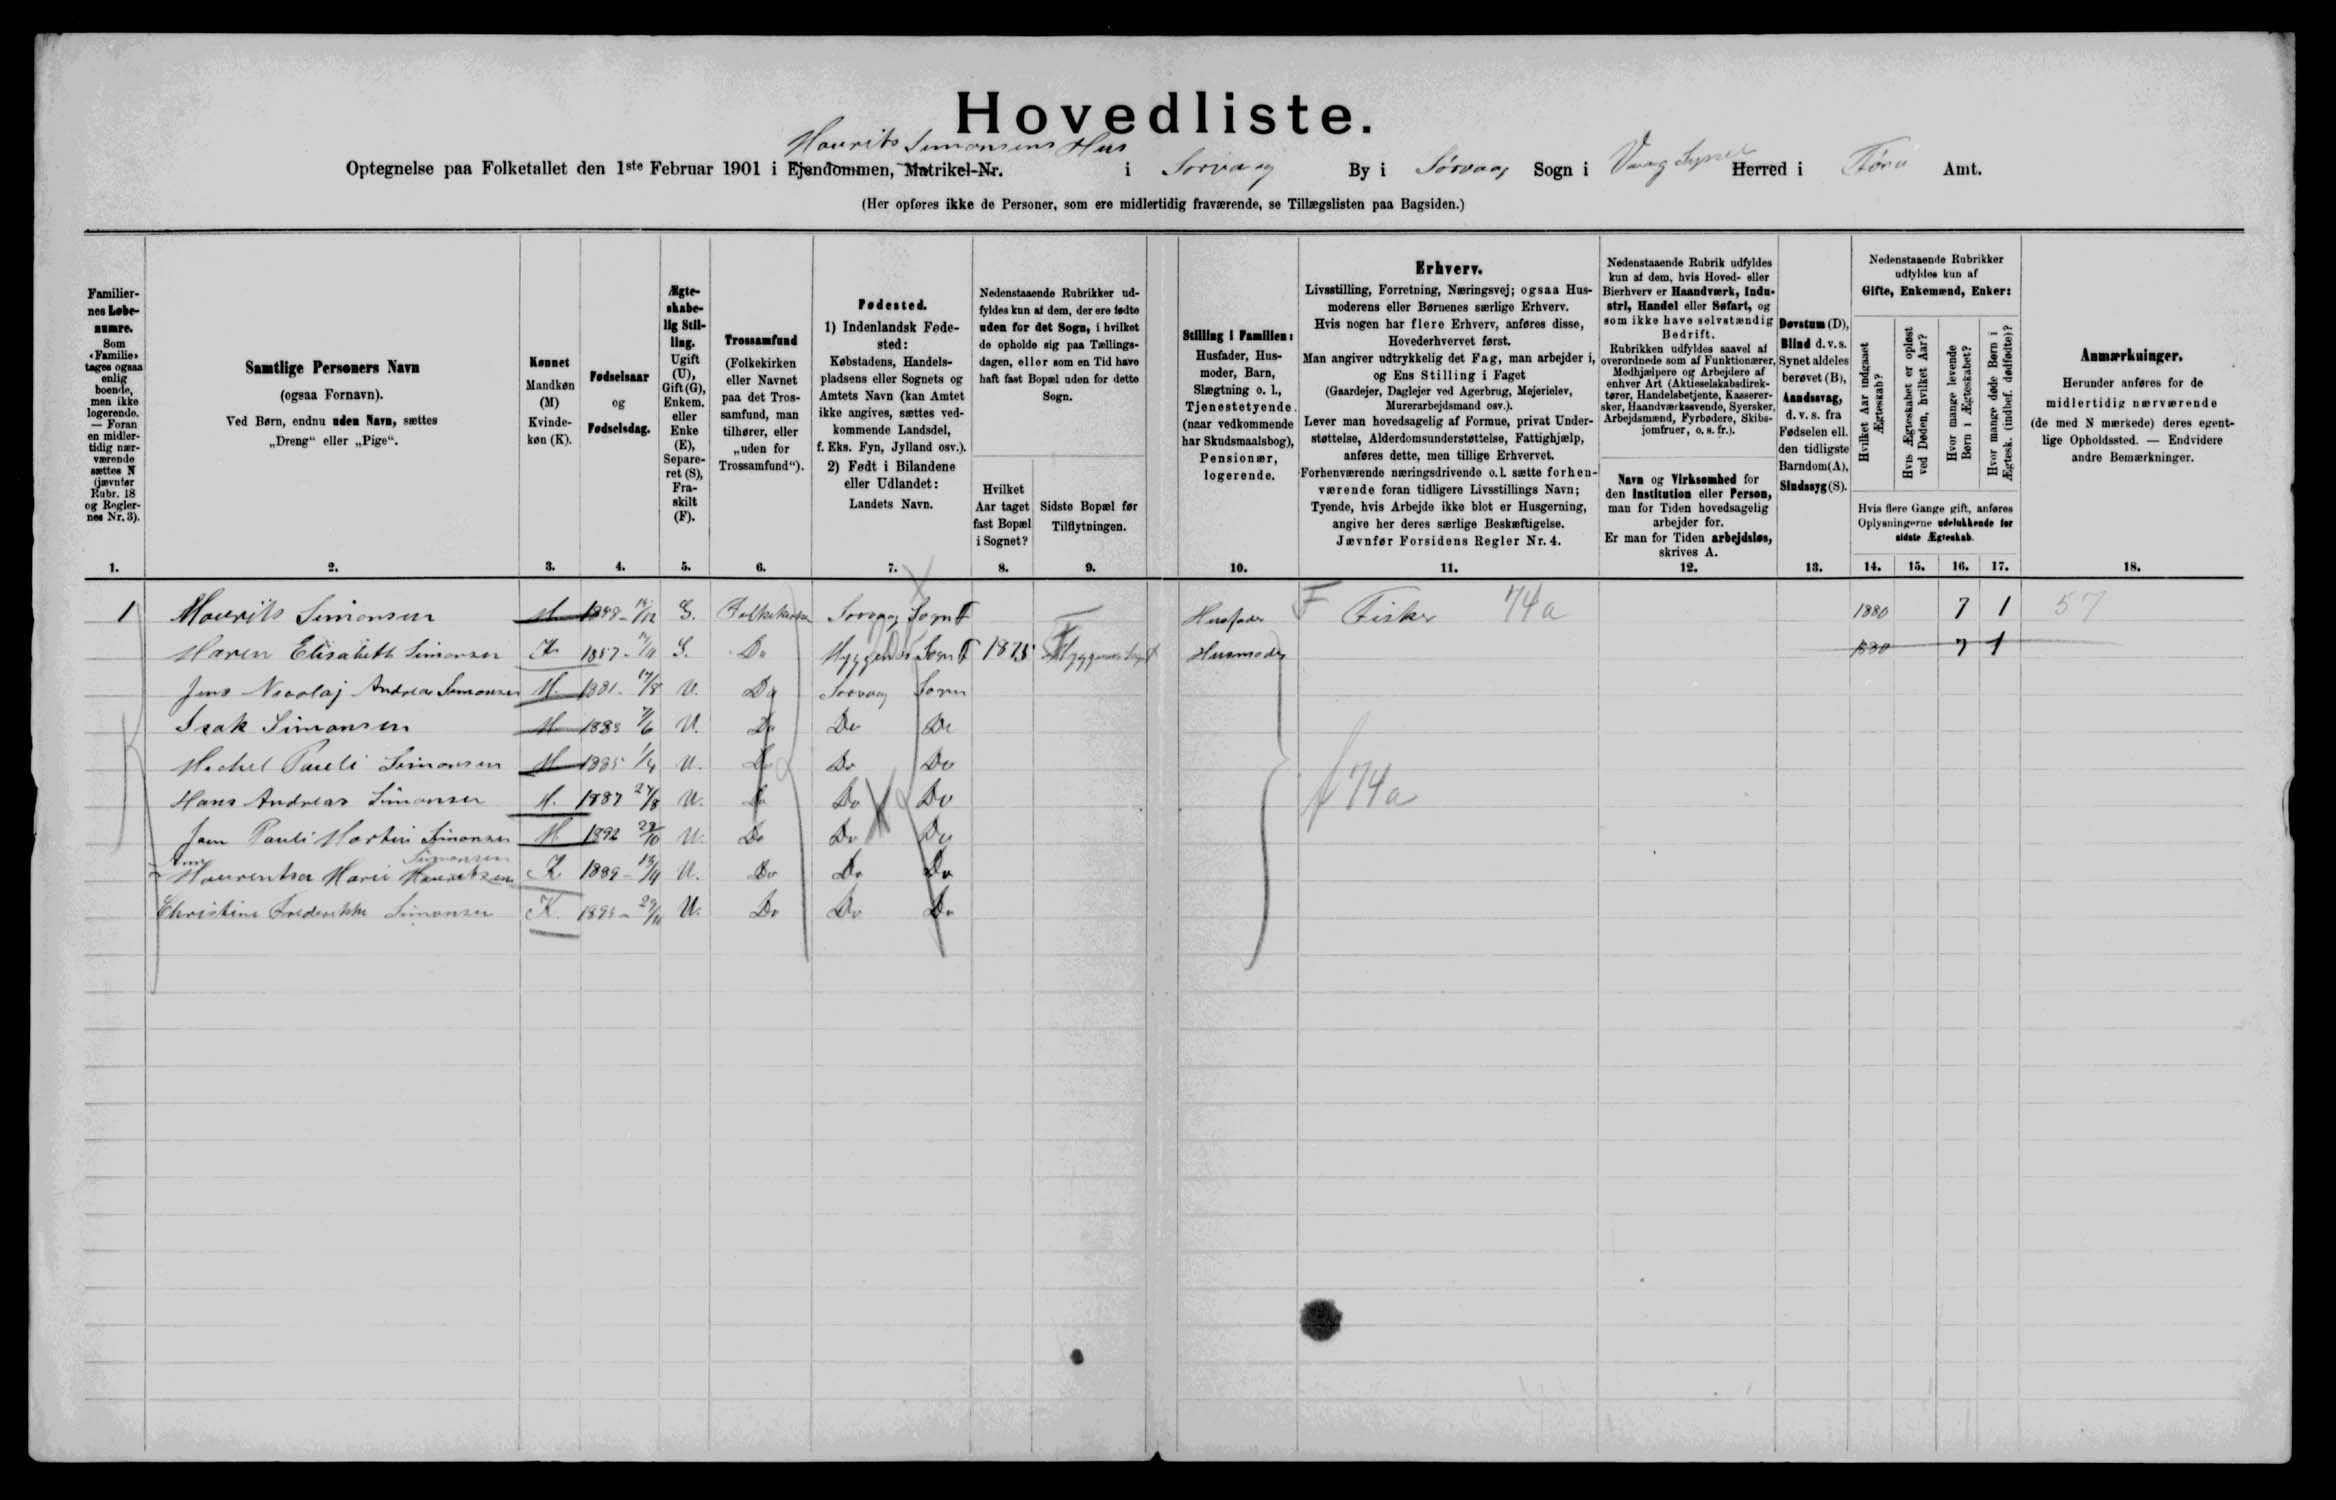 Hovedliste.
Mourits Simonsens Hus
Optegnelse paa Folketallet den 1ste Februar 1901 i Ejendommen, Matrikel-Nr. i Sorvaag By i Sörvaag Sogn i Vaag Syssel Herred i Færö Amt.
(Her opføres ikke de Personer, som ere midlertidig fraværende, se Tillægslisten paa Bagsiden.)
Familier-
nes Løbe-
numre.
Som
«Familie»
tages ogsaa
enlig
boende,
men ikke
logerende.
— Foran
en midler-
tidig nær-
værende
sættes N
(jævnfør
Rubr. 18
og Regler-
nes Nr. 3).
1.
Samtlige Personers Navn
(ogsaa Fornavn).
Ved Børn, endnu uden Navn, sættes
„Dreng“ eller „Pige“.
2.
Kønnet
Mandkøn
(M)
Kvinde-
køn (K).
3.
Fødselsaar
og
Fødselsdag.
4.
Ægte-
skabe-
lig Stil-
ling.
Ugift
(U),
Gift (G),
Enkem.
eller
Enke
(E),
Separe-
ret (S),
Fra-
skilt
(F).
5.
Trossamfund
(Folkekirken
eller Navnet
paa det Tros-
samfund, man
tilhører, eller
„uden for
Trossamfund“).
6.
Fødested.
1) Indenlandsk Føde-
sted:
Købstadens, Handels-
pladsens eller Sognets og
Amtets Navn (kan Amtet
ikke angives, sættes ved-
kommende Landsdel,
f. Eks. Fyn, Jylland osv.).
2) Født i Bilandene
eller Udlandet:
Landets Navn.
7.
Nedenstaaende Rubrikker ud-
fyldes kun af dem, der ere fødte
uden for det Sogn, i hvilket
de opholde sig paa Tællings-
dagen, eller som en Tid have
haft fast Bopæl uden for dette
Sogn.
Hvilket
Aar taget
fast Bopæl
i Sognet?
8.
Sidste Bopæl før
Tilflytningen.
9.
Stilling i Familien:
Husfader, Hus-
moder, Barn,
Slægtning o. l.,
Tjenestetyende
(naar vedkommende
har Skudsmaalsbog),
Pensionær,
logerende.
10.
Erhverv.
Livsstilling, Forretning, Næringsvej; ogsaa Hus-
moderens eller Børnenes særlige Erhverv.
Hvis nogen har flere Erhverv, anføres disse,
Hovederhvervet først.
Man angiver udtrykkelig det Fag, man arbejder i,
og Ens Stilling i Faget
(Gaardejer, Daglejer ved Agerbrug, Mejerielev,
Murerarbejdsmand osv.).
Lever man hovedsagelig af Formue, privat Under-
støttelse, Alderdomsunderstøttelse, Fattighjælp,
anføres dette, men tillige Erhvervet.
Forhenværende næringsdrivende o. l. sætte forhen-
værende foran tidligere Livsstillings Navn;
Tyende, hvis Arbejde ikke blot er Husgerning,
angive her deres særlige Beskæftigelse.
Jævnfør Forsidens Regler Nr. 4.
11.
Nedenstaaende Rubrik udfyldes
kun af dem, hvis Hoved- eller
Bierhverv er Haandværk, Indu-
stri, Handel eller Søfart, og
som ikke have selvstændig
Bedrift.
Rubrikken udfyldes saavel af
overordnede som af Funktionærer,
Medhjælpere og Arbejdere af
enhver Art (Aktieselskabsdirek-
tører, Handelsbetjente, Kasserer-
sker, Haandværkssvende, Syersker,
Arbejdsmænd, Fyrbødere, Skibs-
jomfruer, o. s. fr.).
Navn og Virksomhed for
den Institution eller Person,
man for Tiden hovedsagelig
arbejder for.
Er man for Tiden arbejdsløs,
skrives A.
12.
Døvstum (D),
Blind d. v. s.
Synet aldeles
berøvet (B),
Aandssvag,
d. v. s. fra
Fødselen ell.
den tidligste
Barndom (A),
Sindssyg (S).
13.
Nedenstaaende Rubrikker
udfyldes kun af
Gifte, Enkemænd, Enker:
Hvilket Aar indgaaet Ægteskab?
Hvis Ægteskabet er opløst ved Døden, hvilket Aar?
Hvor mange levende Børn i Ægteskabet?
Hvor mange døde Børn i Ægtesk. (indbef. dødfødte)?
Hvis flere Gange gift, anføres
Oplysningerne udelukkende for
sidste Ægteskab.
14. 15. 16. 17.
Anmærkninger.
Herunder anføres for de
midlertidig nærværende
(de med N mærkede) deres egent-
lige Opholdssted. — Endvidere
andre Bemærkninger.
18.
1 Mourits Simonsen M G. Folkekirken Sorvaag Sogn Husfader F Fisker 74a 1880 7 1 57
Maren Elisabeth Simonsen K 1857 G. Do Myggenæs Sogn 1875 Myggenæs Sogn Husmoder 1880 7 1
Jens Nicolaj Andreas Simonsen M. 1881 17/8 U. Do Sorvaag Sogn
Isak Simonsen M 1883 U. Do Do Do
Mechel Pauli Simonsen M 1885 U. Do Do Do
Hans Andreas Simonsen M. 1887 27/8 U. Do Do Do 74a
Joen Pauli Martin Simonsen M 1892 29/10 U. Do Do Do
Simonsen
Mourentsa Marie Mouritzen K 1889 U. Do Do Do
Christine Frederikke Simonsen K. 1895 29/11 U. Do Do Do